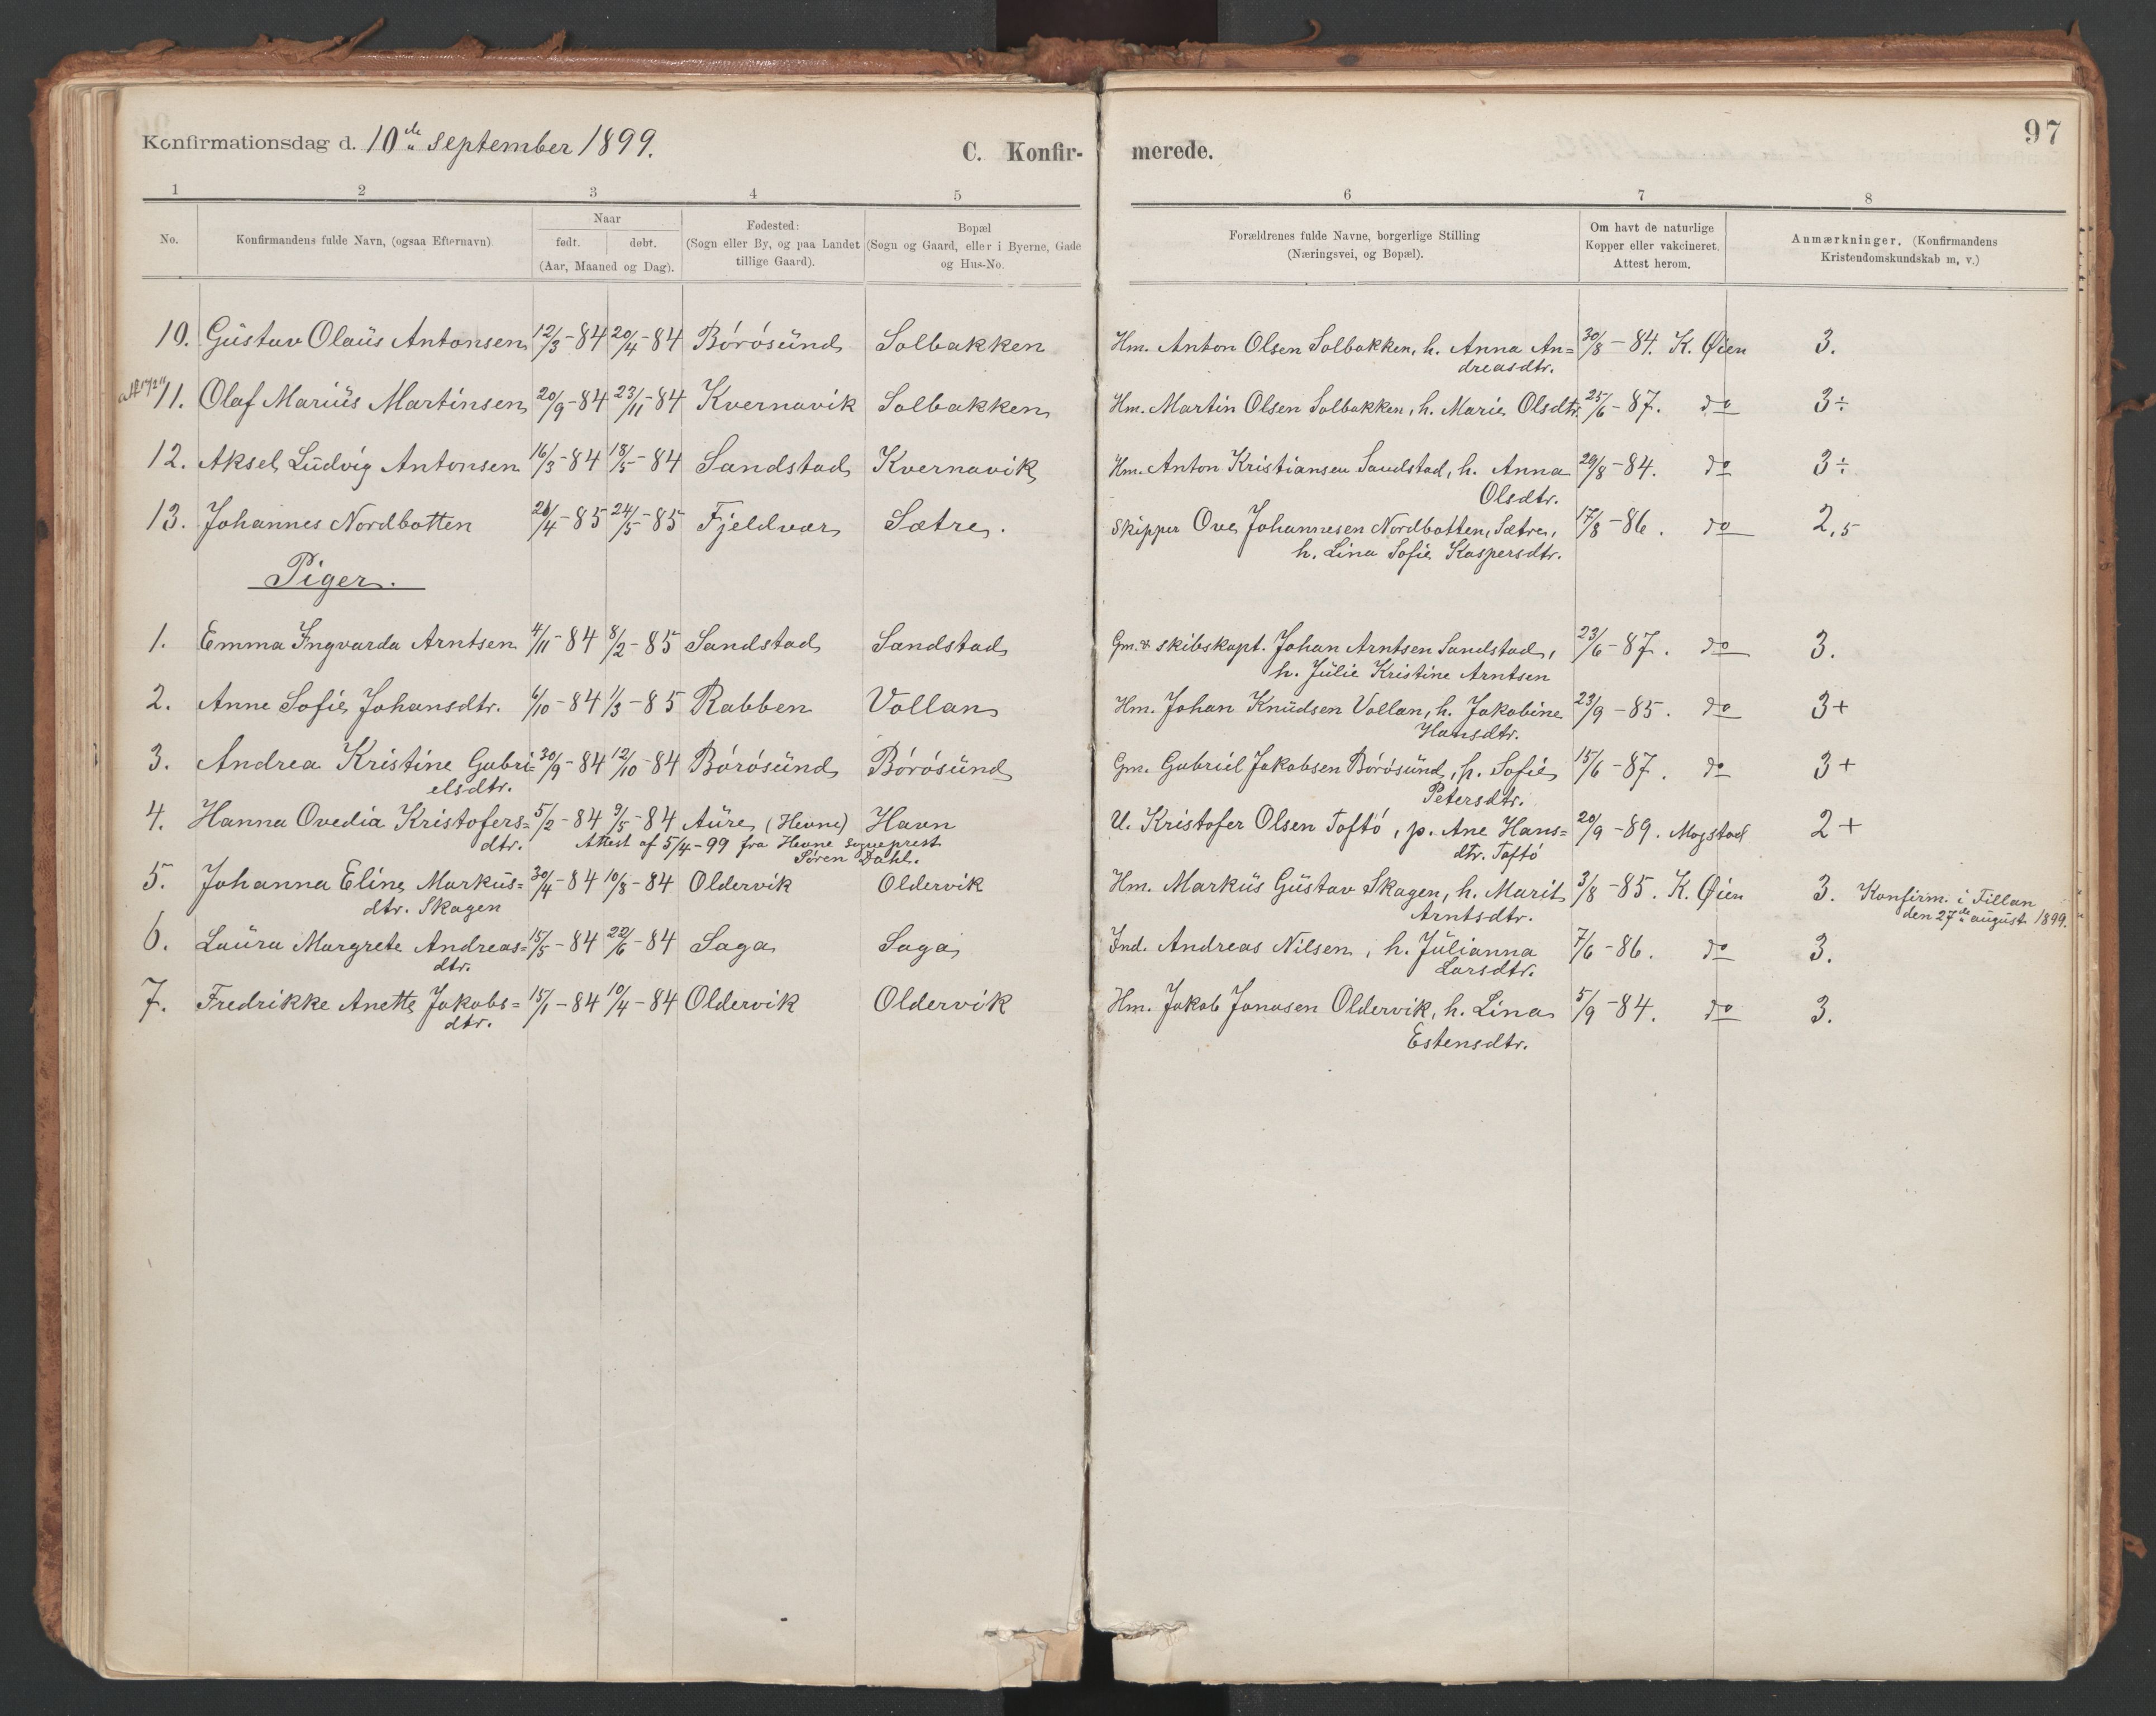 97
Konfirmationsdag d. 10de september 1899.
C. Konfir- merede.
1 2 3 4 5 6 7 8
No.
Konfirmandens fulde Navn, (ogsaa Efternavn).
Naar
født. døbt.
(Aar, Maaned og Dag).
Fødested:
(Sogn eller By, og paa Landet
tillige Gaard).
Bopæl
(Sogn og Gaard, eller i Byerne, Gade
og Hus-No.
Forældrenes fulde Navne, borgerlige Stilling
(Næringsvei, og Bopæl).
Om havt de naturlige
Kopper eller vakcineret.
Attest herom.
Anmærkninger. (Konfirmandens
Kristendomskundskab m. v.)
10. Gustav Olaus Antonsen 12/3-84 20/4-84 Börösund Solbakken Hm. Anton Olsen Solbakken, h. Anna An=
dreasdtr. 30/8-84. K. Øien 3.
11. Olaf Marius Martinsen 20/9-84 23/11-84 Kvernavik Solbakken Hm. Martin Olsen Solbakken, h. Marie Olsdtr. 25/6-87. do 3÷
12. Aksel Ludvig Antonsen 16/3-84 18/5-84 Sandstad Kvernavik Hm. Anton Kristiansen Sandstad, h. Anna
Olsdtr. 29/8-84. do 3÷
13. Johannes Nordbotten 21/4-85 24/5-85 Fjeldvær Sætre. Skipper Ove Johannesen Nordbotten, Sætre,
h. Lina Sofie Kaspersdtr. 17/8-86. do 2,5
Piger.
1. Emma Ingvarda Arntsen 4/11-84 8/2-85 Sandstad Sandstad Gm. & skibskapt. Johan Arntsen Sandstad,
h. Julie Kristine Arntsen 23/6-87. do 3.
2. Anne Sofie Johansdtr. 6/10-84 1/3-85 Rabben Vollan Hm. Johan Knudsen Vollan, h. Jakobine
Hansdtr. 23/9-85. do 3+
3. Andrea Kristine Gabri=
elsdtr. 30/9-84 12/10-84 Börösund Börösund Gm. Gabriel Jakobsen Börösund, h. Sofie
Petersdtr. 15/6-87. do 3+
4. Hanna Ovedia Kristofers=
dtr. 5/2-84 9/5-84 Aure (Hevne) Havn U. Kristofer Olsen Toftö, p. Ane Hans=
dtr. Toftö 20/9-89. Mogstad 2+
Attest af 5/4-99 fra Hevne sogneprest
Søren Dahl.
5. Johanna Eline Markus=
dtr. Skagen 30/4-84 10/8-84 Oldervik Oldervik Hm. Markus Gustav Skagen, h. Marit
Arntsdtr. 3/8-85. K. Øien 3. Konfirm. i Fillan
den 27de august 1899.
6. Laura Margrete Andreas=
dtr. 15/5-84 22/6-84 Saga Saga Ind. Andreas Nilsen, h. Julianna
Larsdtr. 7/6-86. do 3.
7. Fredrikke Anette Jakobs=
dtr. 15/1-84 10/4-84 Oldervik Oldervik Hm. Jakob Jonasen Oldervik, h. Lina
Estensdtr. 5/9-84. do 3.